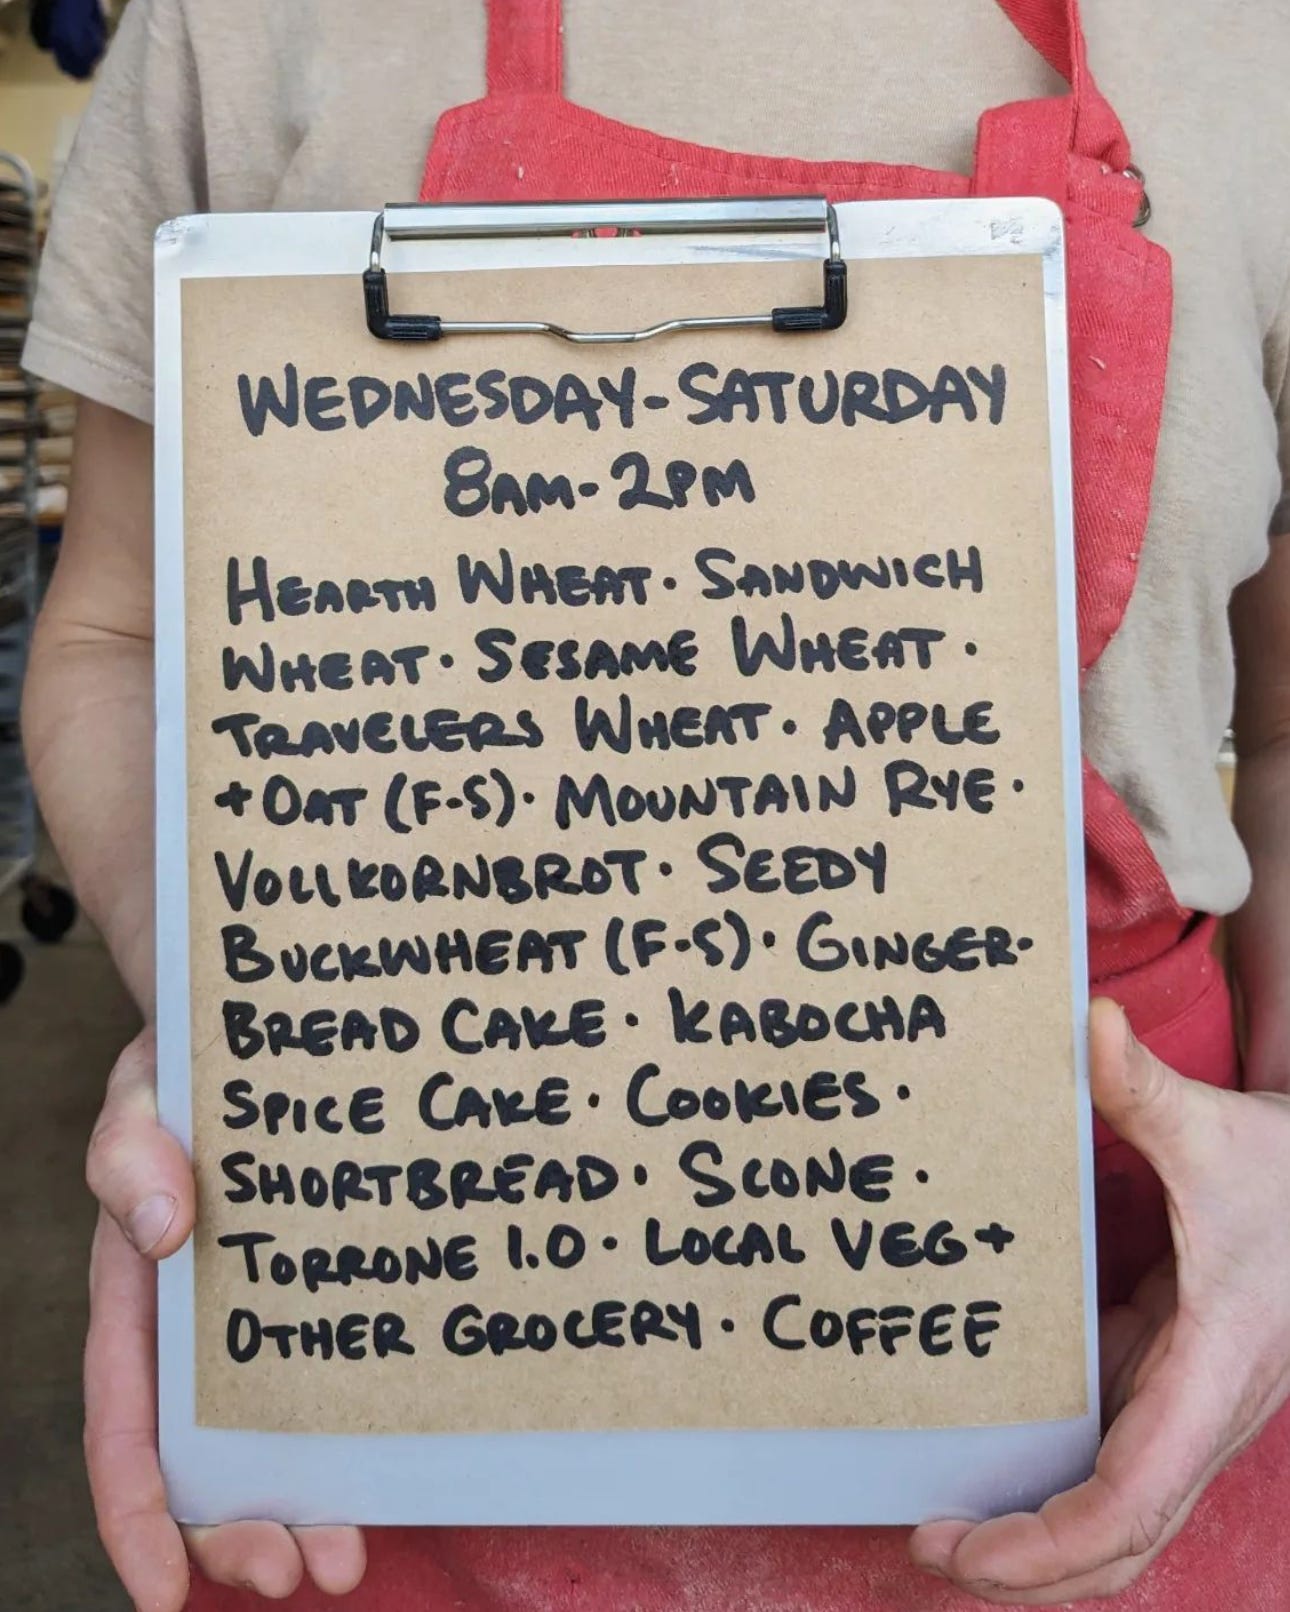 WEDNESDAY-SATURDAY
8AM-2PM
HEARTH WHEAT · SANDWICH
WHEAT · SESAME WHEAT ·
TRAVELERS WHEAT · APPLE
+ OAT (F-S) · MOUNTAIN RYE ·
VOLLKORNBROT · SEEDY
BUCKWHEAT (F-S) · GINGER-
BREAD CAKE · KABOCHA
SPICE CAKE · COOKIES ·
SHORTBREAD · SCONE ·
TORRONE 1.0 · LOCAL VEG +
OTHER GROCERY · COFFEE